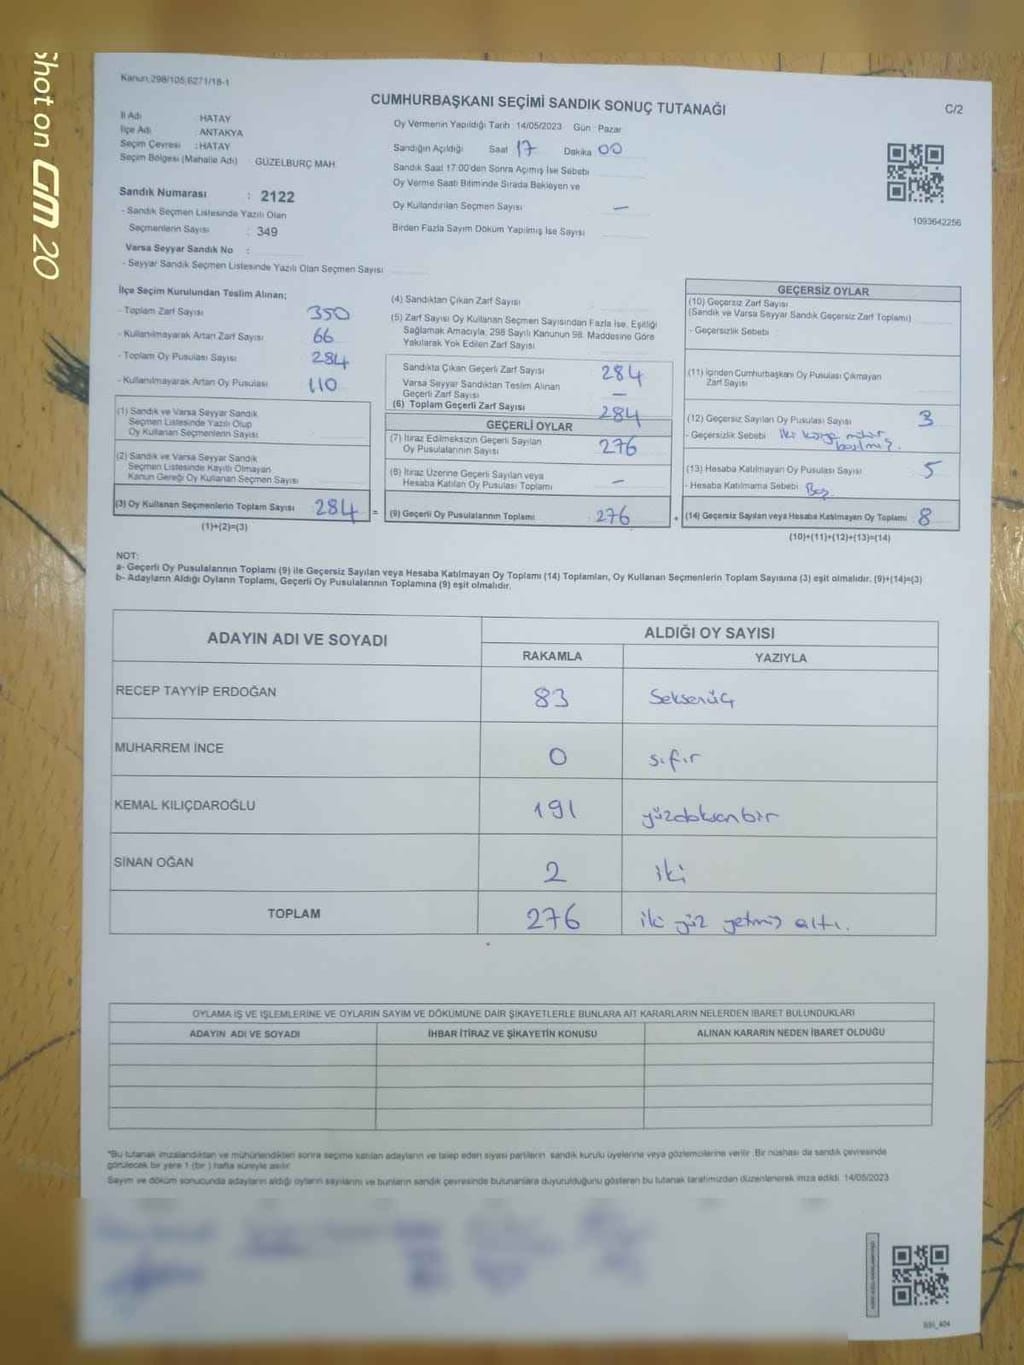 Shot on GM 20
Kanun:298/105;6271/18-1
CUMHURBAŞKANI SEÇİMİ SANDIK SONUÇ TUTANAĞI
C/2
İl Adı : HATAY
İlçe Adı : ANTAKYA
Seçim Çevresi : HATAY
Seçim Bölgesi (Mahalle Adı) : GÜZELBURÇ MAH
Sandık Numarası : 2122
- Sandık Seçmen Listesinde Yazılı Olan
Seçmenlerin Sayısı : 349
Varsa Seyyar Sandık No :
- Seyyar Sandık Seçmen Listesinde Yazılı Olan Seçmen Sayısı
Oy Vermenin Yapıldığı Tarih : 14/05/2023 Gün : Pazar
Sandığın Açıldığı Saat 17 Dakika 00
Sandık Saat 17:00'den Sonra Açımış İse Sebebi
Oy Verme Saati Bitiminde Sırada Bekleyen ve
Oy Kullandırılan Seçmen Sayısı —
Birden Fazla Sayım Döküm Yapılmış İse Sayısı
1093642256
İlçe Seçim Kurulundan Teslim Alınan;
- Toplam Zarf Sayısı 350
- Kullanılmayarak Artan Zarf Sayısı 66
- Toplam Oy Pusulası Sayısı 284
- Kullanılmayarak Artan Oy Pusulası 110
(1) Sandık ve Varsa Seyyar Sandık
Seçmen Listesinde Yazılı Olup
Oy Kullanan Seçmenlerin Sayısı
(2) Sandık ve Varsa Seyyar Sandık
Seçmen Listesinde Kayıtlı Olmayan
Kanun Gereği Oy Kullanan Seçmen Sayısı
(3) Oy Kullanan Seçmenlerin Toplam Sayısı 284 =
(1)+(2)=(3)
(4) Sandıktan Çıkan Zarf Sayısı
(5) Zarf Sayısı Oy Kullanan Seçmen Sayısından Fazla İse, Eşitliği
Sağlamak Amacıyla, 298 Sayılı Kanunun 98. Maddesine Göre
Yakılarak Yok Edilen Zarf Sayısı
Sandıkta Çıkan Geçerli Zarf Sayısı 284
Varsa Seyyar Sandıktan Teslim Alınan
Geçerli Zarf Sayısı —
(6) Toplam Geçerli Zarf Sayısı 284
GEÇERLİ OYLAR
(7) İtiraz Edilmeksizin Geçerli Sayılan
Oy Pusulalarının Sayısı 276
(8) İtiraz Üzerine Geçerli Sayılan veya
Hesaba Katılan Oy Pusulası Toplamı —
(9) Geçerli Oy Pusulalarının Toplamı : 276 +
GEÇERSİZ OYLAR
(10) Geçersiz Zarf Sayısı
(Sandık ve Varsa Seyyar Sandık Geçersiz Zarf Toplamı)
- Geçersizlik Sebebi
(11) İçinden Cumhurbaşkanı Oy Pusulası Çıkmayan
Zarf Sayısı
(12) Geçersiz Sayılan Oy Pusulası Sayısı 3
- Geçersizlik Sebebi iki mühür
(13) Hesaba Katılmayan Oy Pusulası Sayısı 5
- Hesaba Katılmama Sebebi Boş
(14) Geçersiz Sayılan veya Hesaba Katılmayan Oy Toplamı 8
(10)+(11)+(12)+(13)=(14)
NOT:
a- Geçerli Oy Pusulalarının Toplamı (9) ile Geçersiz Sayılan veya Hesaba Katılmayan Oy Toplamı (14) Toplamları, Oy Kullanan Seçmenlerin Toplam Sayısına (3) eşit olmalıdır. (9)+(14)=(3)
b- Adayların Aldığı Oyların Toplamı, Geçerli Oy Pusulalarının Toplamına (9) eşit olmalıdır.
ADAYIN ADI VE SOYADI
ALDIĞI OY SAYISI
RAKAMLA YAZIYLA
RECEP TAYYİP ERDOĞAN 83 Seksenüç
MUHARREM İNCE 0 sıfır
KEMAL KILIÇDAROĞLU 191 yüzdoksanbir
SİNAN OĞAN 2 iki
TOPLAM 276 iki yüz yetmiş altı.
OYLAMA İŞ VE İŞLEMLERİNE VE OYLARIN SAYIM VE DÖKÜMÜNE DAİR ŞİKAYETLERLE BUNLARA AİT KARARLARIN NELERDEN İBARET BULUNDUKLARI
ADAYIN ADI VE SOYADI İHBAR İTİRAZ VE ŞİKAYETİN KONUSU ALINAN KARARIN NEDEN İBARET OLDUĞU
*Bu tutanak imzalandıktan ve mühürlendikten sonra seçime katılan adayların ve talep eden siyasi partilerin sandık kurulu üyelerine veya gözlemcilerine verilir. Bir nüshası da sandık çevresinde
görülecek bir yere 1 (bir) hafta süreyle asılır.
Sayım ve döküm sonucunda adayların aldığı oyların sayılarını ve bunların sandık çevresinde bulunanlara duyurulduğunu gösteren bu tutanak tarafımızdan düzenlenerek imza edildi. 14/05/2023